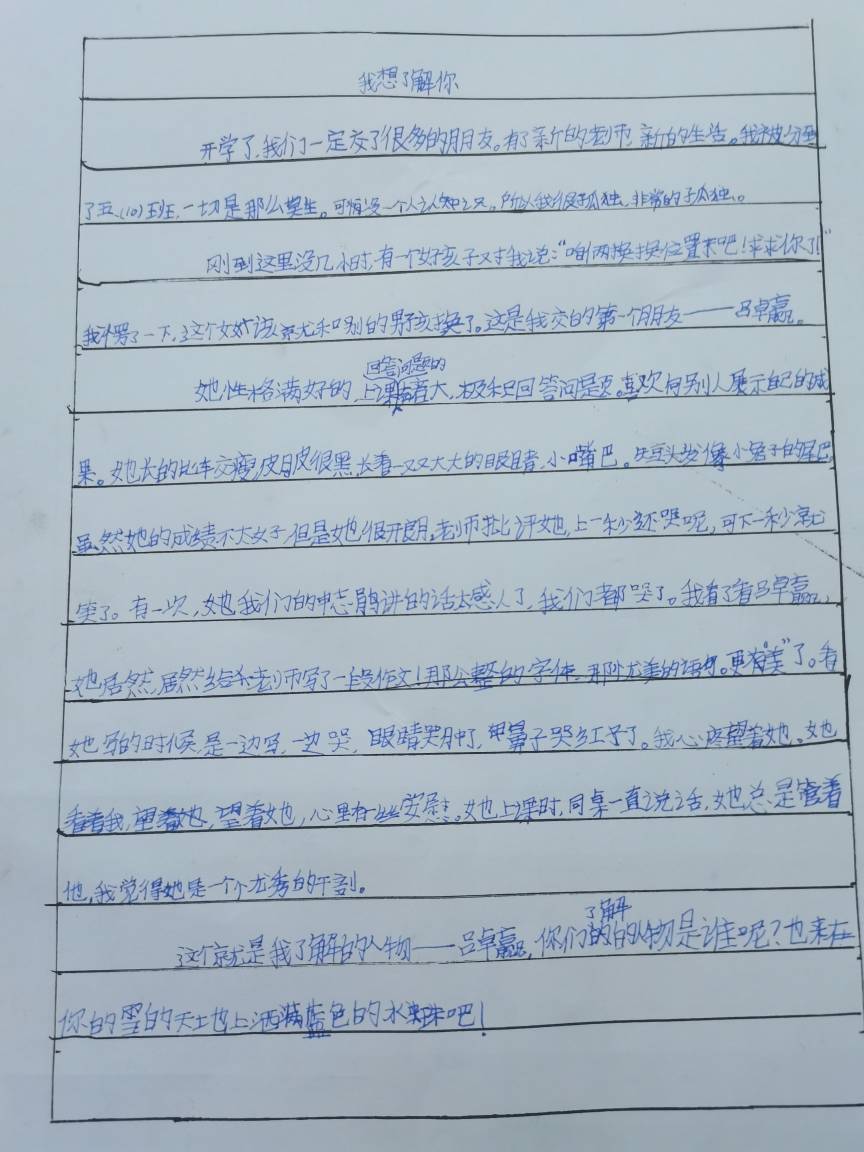 我想了解你
开学了,我们一定交了很多的朋友。有了新的老师,新的生活。我被分到
了五、(10)班,一切是那么莫生。可惜没一个人认知之只。所以我很孤独,非常的孤独。
刚到这里没几小时,有一个女孩子对我说:“咱俩换换位置来吧!求求你了!”
我愣了一下,这个女孩该就和别的男孩换了。这是我交的第一个朋友——吕卓赢。
回答问题的
她性格满好的,上课声音大,积极回答问题。喜欢向别人展示自己的成
果。她长的比较瘦,皮肤很黑,长着一双大大的眼睛,小嘴巴。头发像小兔子的尾巴
虽然她的成绩不大好,但是她很开朗。老师批评她,上一秒还哭呢,可下一秒就
笑了。有一次,她我们的申志鹃讲的话太感人了,我们都哭了。我看了看吕卓赢,
她居然,居然给老师写了一段作文!那公整的字体、那优美的语句。更“美”了。看
她写的时候,是一边写,一边哭,眼睛哭肿了,鼻子哭红了。我心疼望着她。她
看着我,望着她,望着她,心里有丝安慰。她上课时,同桌一直说话,她总是管着
他,我觉得她是一个优秀的干部。
了解
这个就是我了解的人物——吕卓赢,你们的人物是谁呢?也来在
你的雪的天土也上洒满蓝色的水珠吧!